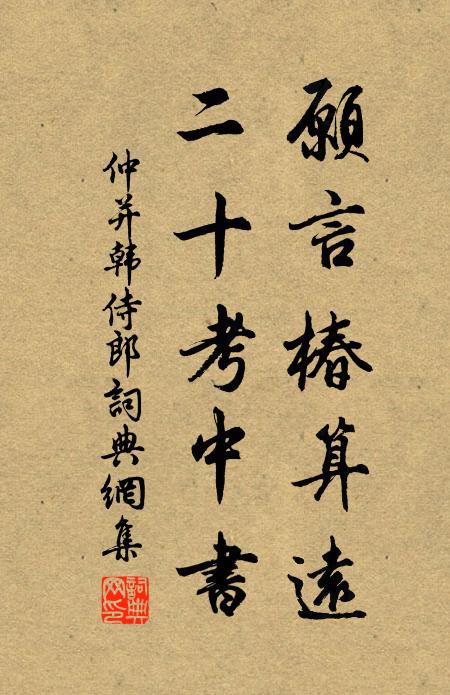 願言椿算遠
二十考中書
仲并韩侍郎詞典網集
詞典网印